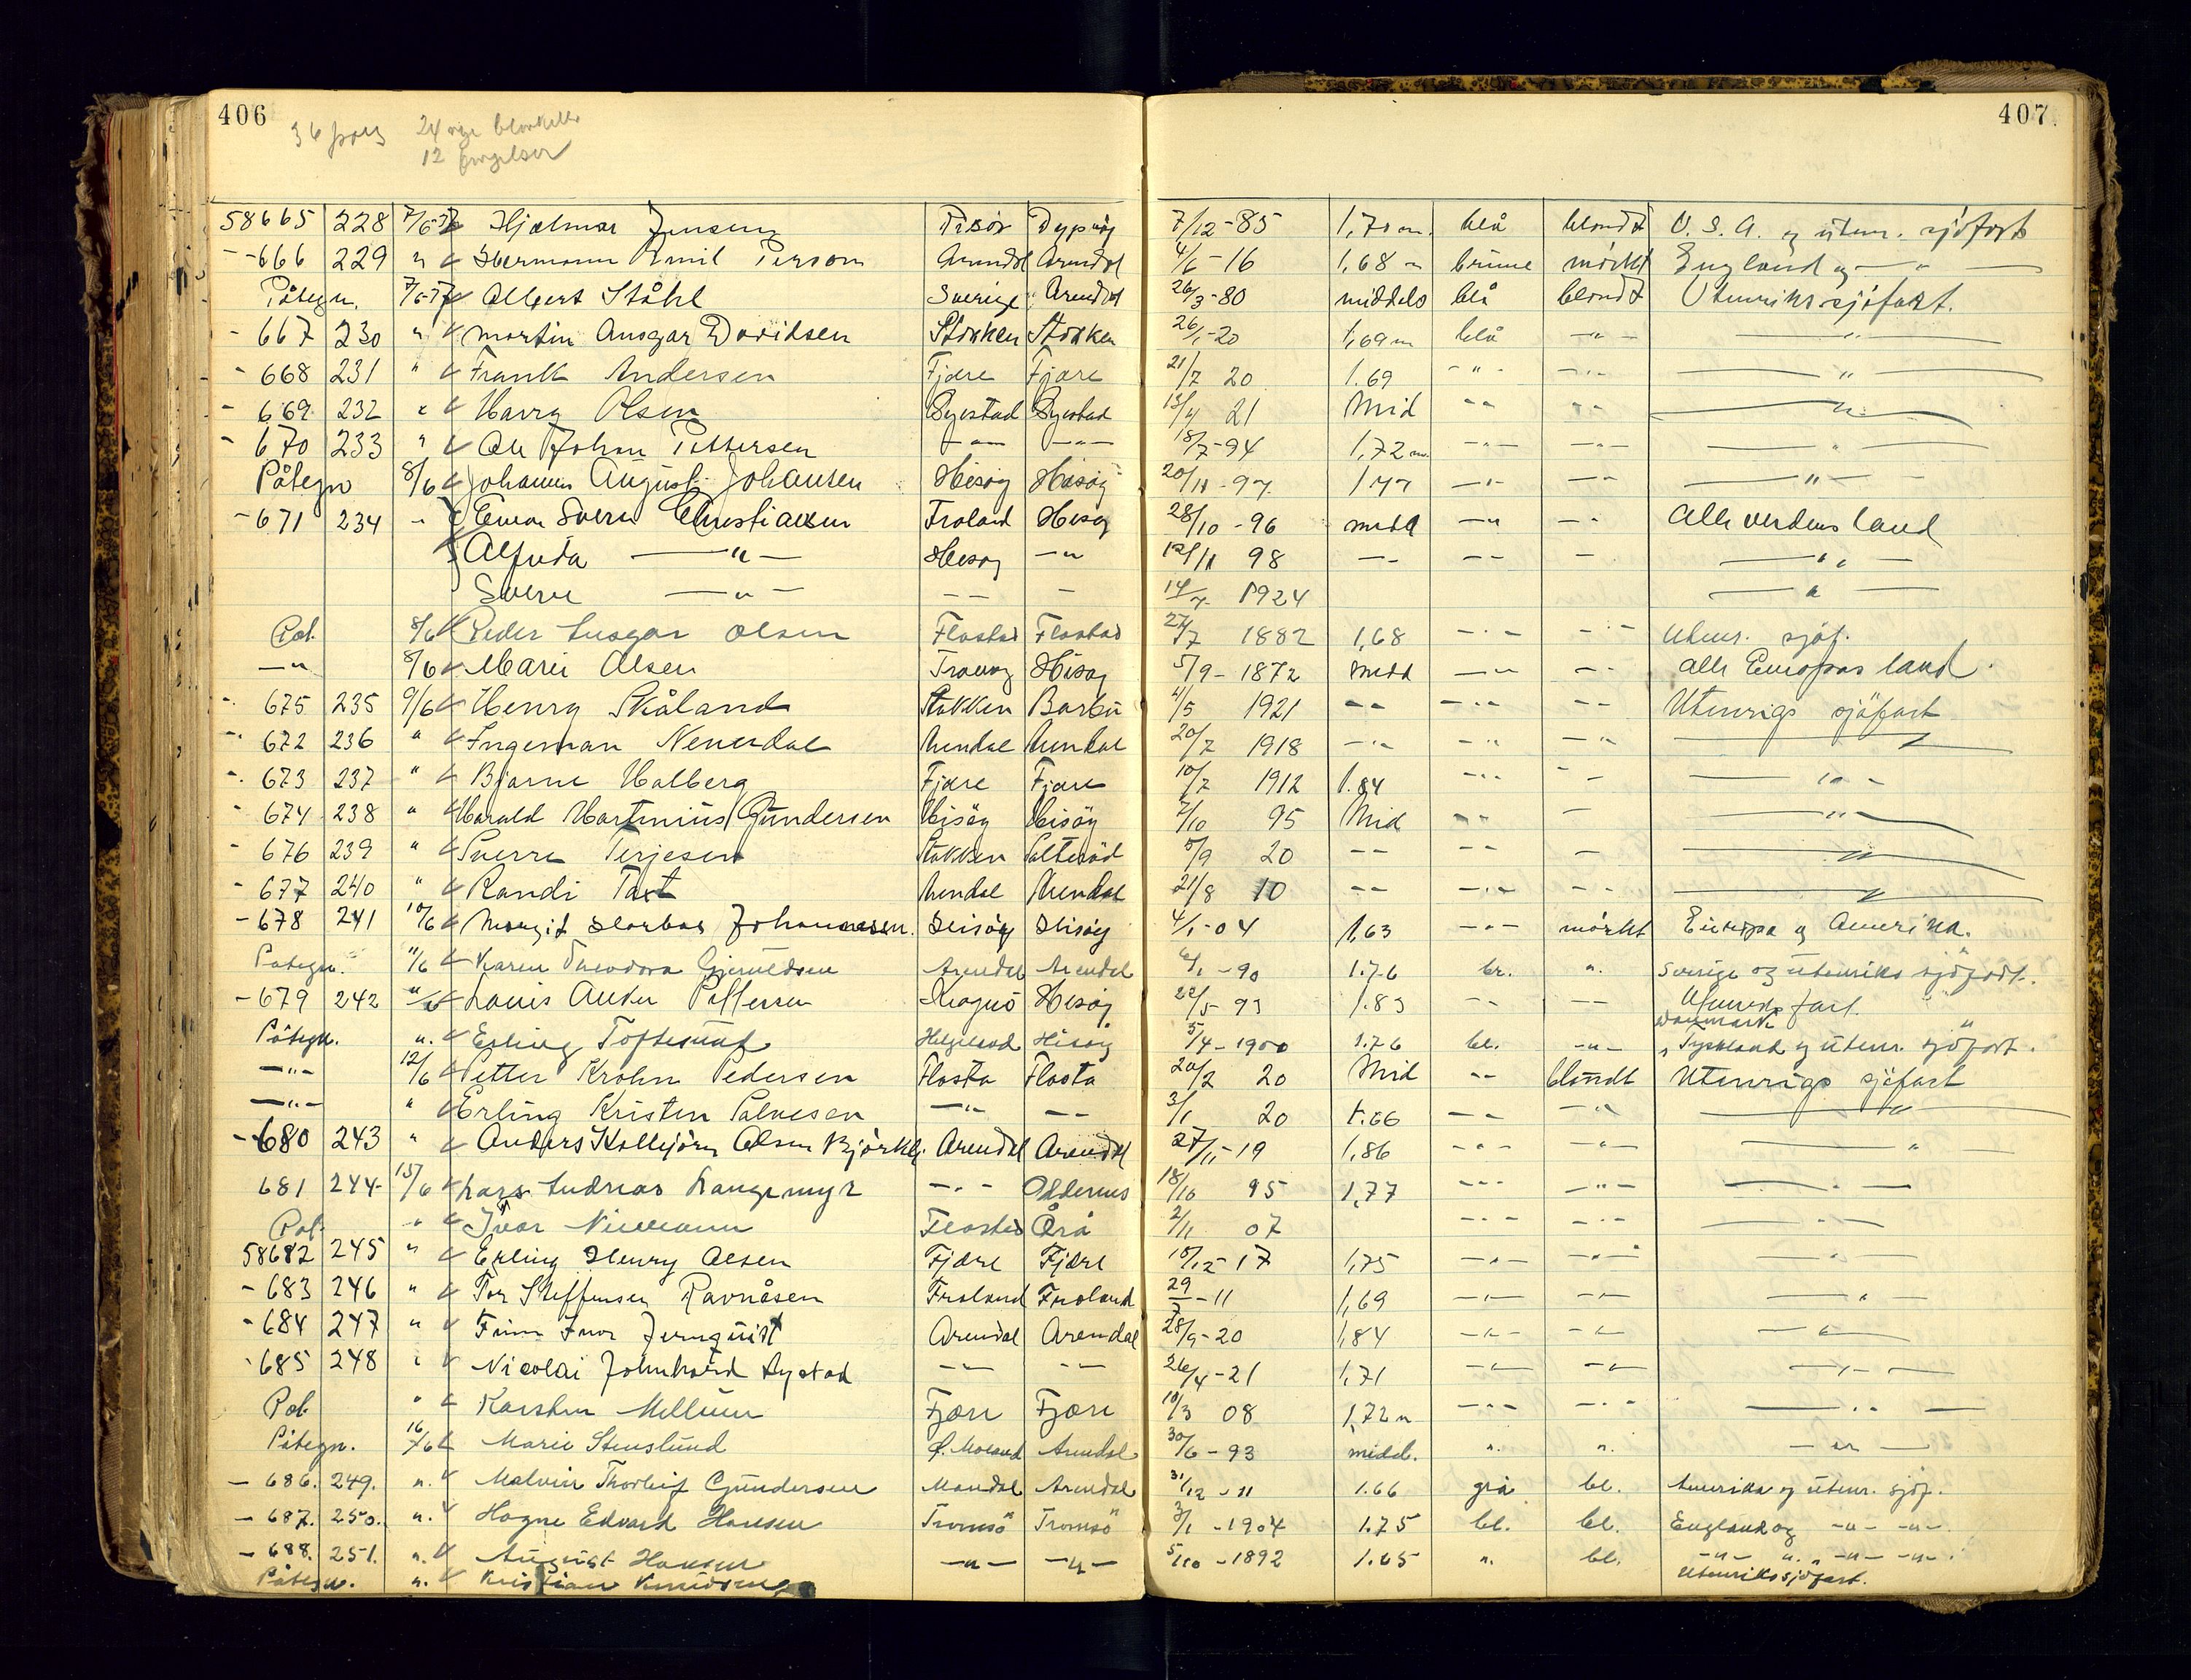 406
36 pass 24 nye blanketter
12 fornyelser
407
58665 228 7/6-37 Hjalmar Jensen Risör Dypvåg 7/12-85 1,70 m. blå blondt U.S.A. og utenr. sjöfart
-666 229 " Hermann Emil Person Arendal Arendal 4/6-16 1,68 m brune mörkt England og — " —
Påtegn. 7/6-37 Albert Ståhl Sverige Arendal 26/3-80 middels blå blondt Utenriks sjöfart.
-667 230 " Martin Ansgar Davidsen Stokken Stokken 26/1-20 1,69 m blå -"- — " —
-668 231 " Frank Andersen Fjære Fjære 21/7 20 1.69 -"- -"- — " —
-669 232 " Harry Olsen Øyestad Øyestad 13/4 21 Mid -"- -"- — " —
-670 233 " Ole Johan Pettersen -"- -"- 18/7-94 1,72 m. -"- -"- — " —
Påtegn 8/6 Johannes August Johansen Hisøy Hisøy 20/11-97 1,77 -"- -"- — " —
-671 234 " Einar Sverre Christiansen Froland Hisøy 28/10-96 midd -"- -"- Alle verdens land
Alfrida — " — Hisøy -"- 12/11 98 -- -- - — " —
Sverre — " — -- - 14/7 1924 — " —
Påt. 8/6 Peder Ansgar Olsen Flostad Flostad 27/7 1882 1,68 -"- -"- Utenr. sjöf.
-"- 8/6 Marie Olsen Tromøy Hisøy 5/9-1872 midd -"- -"- alle Europas land.
- 675 235 9/6 Henry Skåland Stokken Barbu 4/5 1921 -- -"- -- Utenrigs sjöfart
- 672 236 " Ingeman Nenendal Arendal Arendal 20/7 1918 -"- -"- -"- — " —
- 673 237 " Bjarne Halberg Fjære Fjære 10/7 1912 1.84 -"- -- — " —
- 674 238 " Harald Martinius Gundersen Hisöy Hisöy 7/10 95 Mid -"- - — " —
- 676 239 " Sverre Terjesen Stokken Salteröd 5/9 20 -- -- - — " —
- 677 240 " Randi Taxt Arendal Arendal 21/8 10 -- -"- -- — " —
-678 241 10/6 Margit Johannessen. Hisöy Hisöy 4/1-04 1,63 -"- mörkt Europa og Amerika.
Påtegn. 11/6 Karen Theodora Gjeruldsen Arendal Arendal 6/1-90 1.76 br. ". Sverige og utenriks sjöfart.
-679 242 11/6 Louis Anker Pettersen Kragerö Hisøy 22/5-93 1.83 -- -- Utenriksfart.
Påtegn. ". Erling Toftesund Helgeland Hisøy 5/4-1900 1.76 bl. -"- Danmark, Tyskland og utenr. sjöfart.
-"- 12/6 Petter Krohn Pedersen Flosta Flosta 20/2 20 Mid -- blondt Utenrigs sjöfart
-"- " Erling Kristen Salvesen -"- -- 3/1 20 1.66 -- -"- — " —
-680 243 " Anders Kallbjörn Olsen Björkli. Arendal Arendal 27/11-19 1,86 -"- -"- — " —
681 244 15/6 Lars Andreas Langemyr -"- Oddernes 18/10 95 1,77 -"- -"- — " —
Påt. " Ivar Niemann Flostad Örå 2/11 07 -"- -"- — " —
58682 245 " Erling Henry Olsen Fjære Fjære 10/12-17 1,75 -"- -"- "
-683 246 " Tor Steffensen Ravnåsen Froland Froland 29/7-11 1,69 -"- -"- — " —
-684 247 " Finn Ivar Jernquist Arendal Arendal 28/9-20 1,84 -"- -"- — " —
-685 248 " Nicolai Johnhard Nystad -"- -"- 26/4-21 1,71 -"- -"- — " —
Påt. " Karsten Mellum Fjære Fjære 10/3 08 1,72 m -"- -"- — " —
Påtegn. 16/6 Marie Stenslund Ø. Moland Arendal 30/6-93 midd. ". ". — " —
- 686. 249. ". Malvin Thorleif Gundersen Mandal Arendal 31/12-11 1.66 grå bl. Amerika og utenr. sjöf.
- 687. 250. ". Hagne Edvard Hansen Tromsö Tromsö 3/1-1904 1.75 bl. bl. England og -"- -"-
- 688. 251. ". August Hansen -"- -"- 5/10-1892 1.65 ". bl. -"- ". -"- -"-.
Påtegn. ". Kristian Knudsen Utenrikssjöfart.